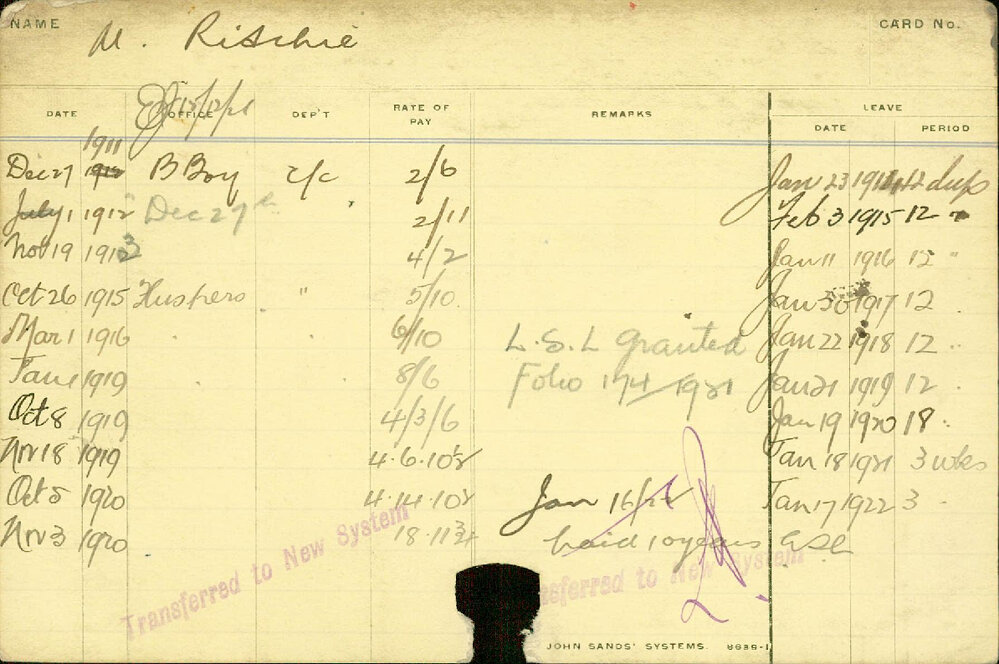 NAME M. Ritchie CARD No.
DATE OFFICE DEP'T RATE OF PAY REMARKS LEAVE
DATE PERIOD
1911
Dec 27 1912 B Boy 2/6 Jan 23 1914 12 days
July 1 1912 Dec 27th " 2/11 Feb 3 1915 12 "
Nov 19 1913 4/2 Jan 11 1916 12 "
Oct 26 1915 " 5/10. Jan 30 1917 12 .
Mar 1 1916 . . 6/10 L.S.L granted Jan 22 1918 12 ..
Jan 1 1919 . . 8/6 Folio 174/1921 Jan 21 1919 12 .
Oct 8 1919 4/3/6 Jan 19 1920 18 .
Nov 18 1919 4.6.10½ Jan 18 1921 3 wks
Oct 5 1920 4.14.10½ Jan 16/22 Jan 17 1922 3 -
Nov 3 1920 18.11¾ paid 10 years GSL
Transferred to New System
Transferred to New System
JOHN SANDS' SYSTEMS. 8635-1